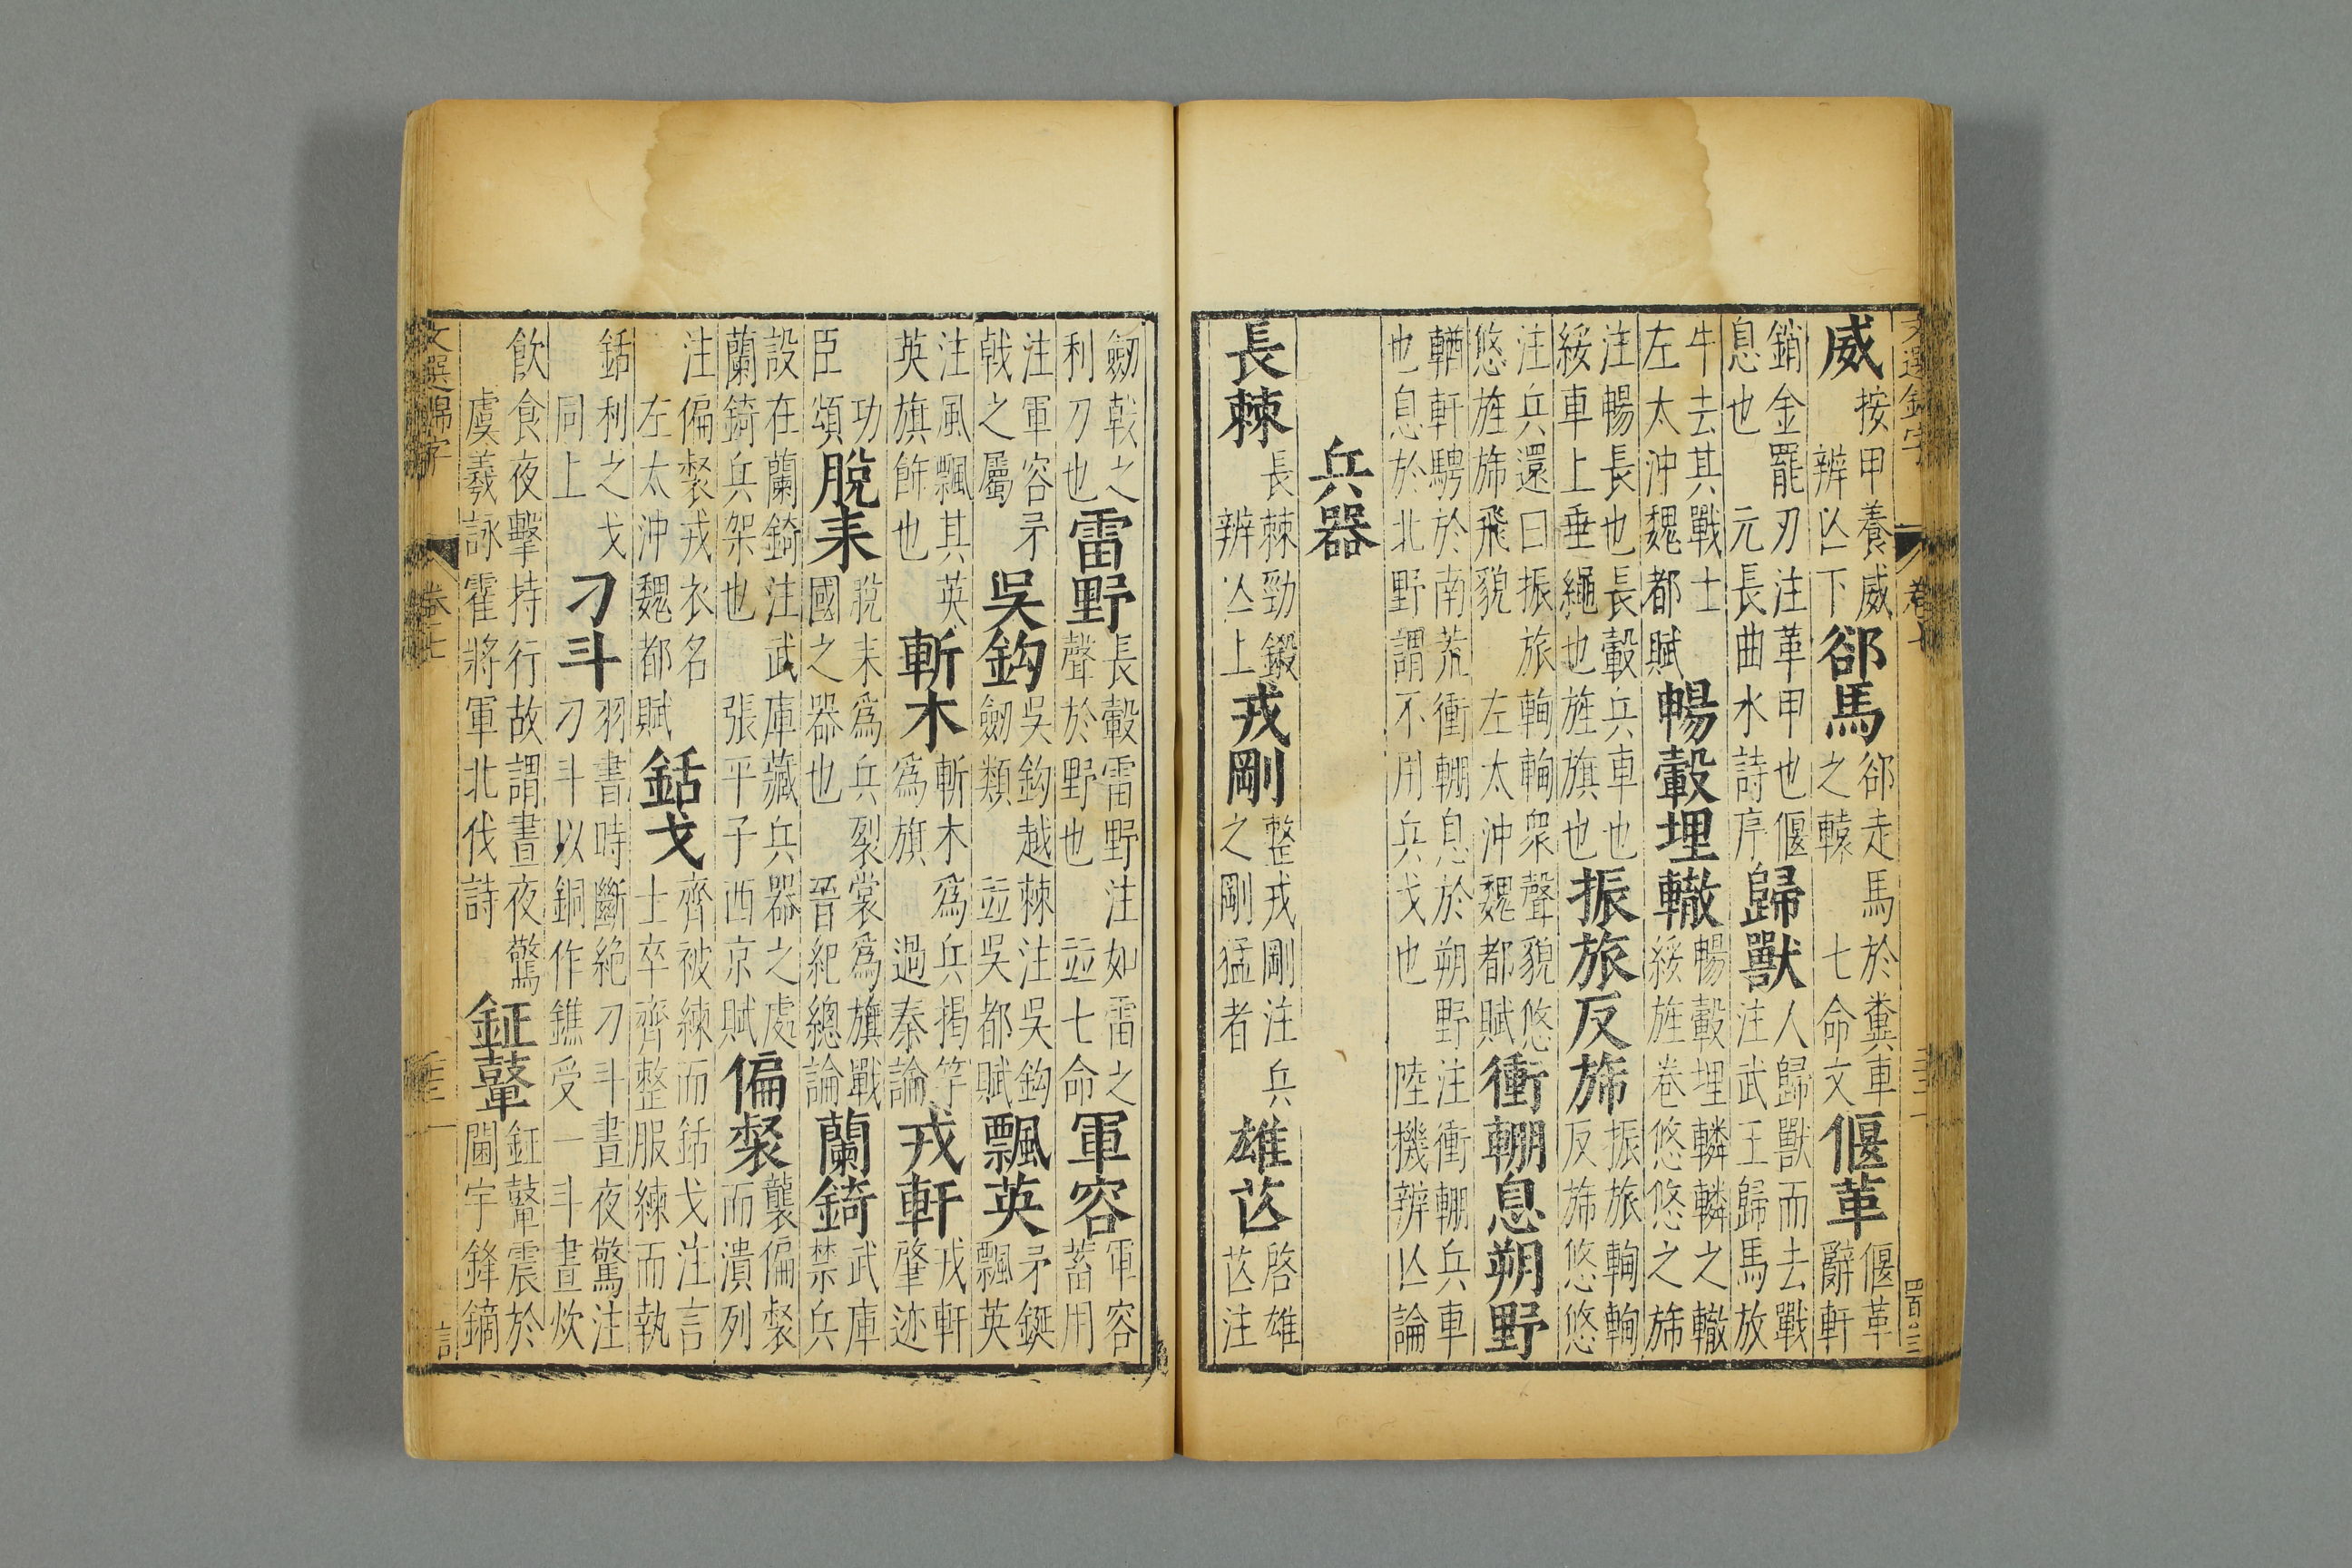 威按甲養威辨亾下郤馬郤走馬於糞車之轅七命文偃革偃革辭軒
銷金罷刃注革甲也偃息也元長曲水詩序歸獸人歸獸而去戰注武王歸馬放
牛去其戰士左太沖魏都賦暢轂埋轍暢轂埋轔轔之轍綏旌卷悠悠之斾
注暢長也長轂兵車也綏車上垂繩也旌旗也振旅反斾振旅輷輷反斾悠悠
注兵還曰振旅輷輷衆聲貌悠悠旌斾飛貌左太沖魏都賦衝輣息朔野
輶軒騁於南荒衝輣息於朔野注衝輣兵車也息於北野謂不用兵戈也陸機辨亾論
兵器
長棘長棘勁鎩辨亾上戎剛整戎剛注兵之剛猛者雄芒啓雄芒注
劒戟之利刀也雷野長轂雷野注如雷之聲於野也並七命軍容軍容蓄用
注軍容矛戟之屬吳鈎吳鈎越棘注吳鈎劒類並吳都賦飄英矛鋋飄英
注風飄其英英旗飾也斬木斬木爲兵揭竿爲旗過秦論戎軒戎軒肇迹
功臣頌脫耒脫耒爲兵裂裳爲旗戰國之器也晉紀總論蘭錡武庫禁兵
設在蘭錡注武庫藏兵器之處蘭錡兵架也張平子西京賦偏裻襲偏裻而潰列
注偏裻戎衣名左太沖魏都賦銛戈齊被練而銛戈注言士卒齊整服練而執
銛利之戈同上刁斗羽書時斷絶刁斗晝夜驚注刁斗以銅作鐎受一斗晝炊
飲食夜擊持行故謂晝夜驚虞羲詠霍將軍北伐詩鉦鼙鉦鼙震於閫宇鋒鏑
文選錦字 卷七